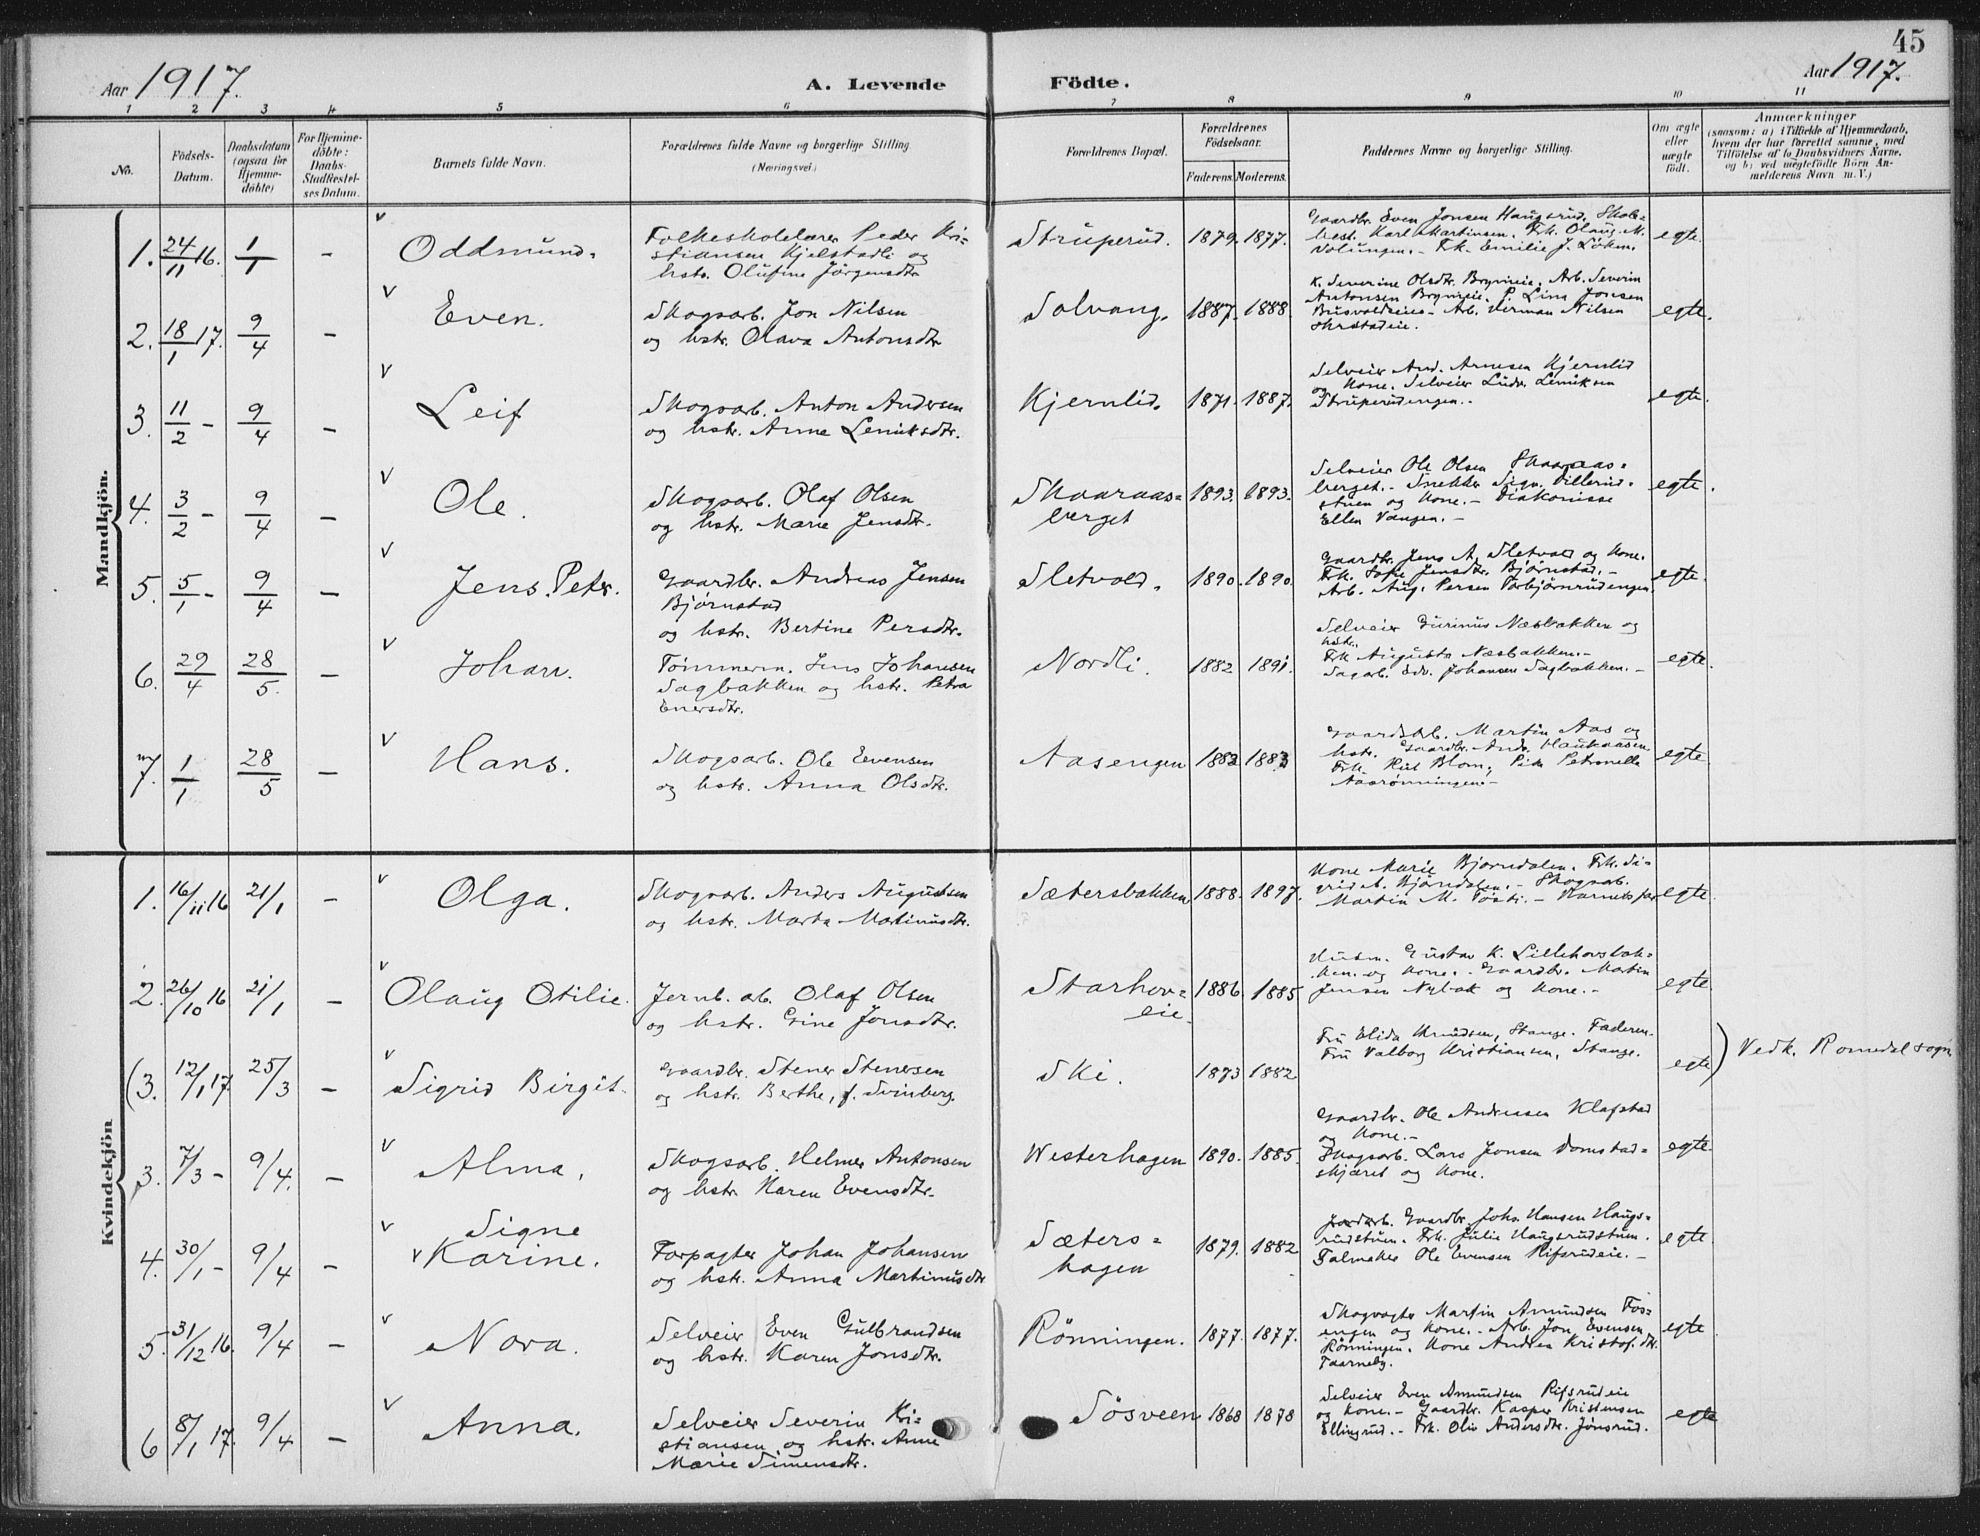 45
Aar 1917.
A. Levende Födte.
Aar 1917.
1 2 3 4 5 6 7 8 9 10 11
No.
Födsels-Datum.
Daabsdatum (ogsaa for Hjemme-döbte)
For Hjemme-döbte: Daabs-Stadfæstel-ses Datum.
Barnets fulde Navn.
Forældrenes fulde Navne og borgerlige Stilling (Næringsvei)
Forældrenes Bopæl.
Forældrenes Födselsaar.
Faderens. Moderens.
Faddernes Navne og borgerlige Stilling.
Om ægte eller uægte födt.
Anmærkninger
(saasom: a) i Tilfælde af Hjemmedaab, hvem der har forrettet samme, med Tilföielse af to Daabsvidners Navne, og b) ved uægtefödte Börn Anmelderens Navn m. V.)
Mandkjön.
1. 24/11 16. 1/1 – Oddmund.
Folkeskolelærer Peder Kri-
stiansen Kjelstadli og
hstr. Olufine Jörgensdtr
Struperud. 1879. 1877.
Gaardbr. Even Jonsen Haugsrud. Skole-
best. Karl Martinsen. Frk. Olaug M.
Volungen. – Frk. Emilie J. Löken.
egte.
2. 18/1 17. 9/4 – Even.
Skogsarb. Jon Nilsen
og hstr. Olava Antonsdtr
Solvang. 1887. 1888.
K. Severine Olsdtr. Brynieie. Arb. Severin
Antonsen Brynieie. P. Lina Jonsen
Busvoldseie – Arb. Herman Nilsen
egte.
3. 11/2 – 9/4 – Leif
Skogsarb. Anton Andersen
og hstr. Anne Lenniksdtr.
Kjernlid. 1871. 1887.
Selveier And. Arnesen Kjernlid
og Kone. Selveier Ludv. Lenniksen
Struperudengen. –
egte.
4. 3/2 – 9/4 – Ole.
Skogsarb. Olaf Olsen
og hstr. Marie Jensdtr.
Skaaraas-
berget 1893. 1893.
Selveier Ole Olsen Skaaraas-
berget. – Snekker Sigv. Lillerud-
stuen og Kone. – Diakonisse
Ellen Vangen. –
egte.
5. 5/1 – 9/4 – Jens Petr.
Gaardbr. Andreas Jensen
Bjørnstad
og hstr. Bertine Persdtr.
Sletvold. 1890. 1890.
Gaardbr. Jens A. Sletvold og Kone.
Frk. Sofie Jensdtr. Bjørnstad. –
Arb. Aug. Persen Torbjörnrudengen
egte.
6. 29/4 28/5. – Johan.
Tömmerm. Jens Johansen
Sagbakken og hstr. Petra
Enersdtr.
Nordli. 1882 1891.
Selveier Gurinus Næsbakken og
hstr.
Frk Augusta Næsbakken. –
Sagarb. Edv. Johansen Sagbakken. –
egte.
7. 1/1 28/5 – Hans.
Skogsarb. Ole Evensen
og hstr. Anna Olsdtr.
Aasengen 1882 1883
Gaardsarb. Martin Aas og
hstr. Gaardbr. Andr. Haukaasen.
Frk. Rut Blom, Pike Petronelle
Aasrønningen –
egte
Kvindekjön
1. 16/11 16 21/1 – Olga.
Skogsarb. Anders Augustsen
og hstr. Marta Martinusdtr.
Sætersbakken 1888. 1897.
Kone Marie Bjørndalen. Frk. Si-
grid A. Bjørndalen. – Skogsarb.
Martin M. Tosti. – Barnets far
egte.
2. 26/10 16 21/1 – Olaug Otilie.
Jernb. arb. Olaf Olsen
og hstr. Gine Jonsdtr.
Starhov-
eie. 1886. 1885.
Husm. Gustav K. Lillehovsbak-
ken. og Kone. – Gaardbr. Martin
Jensen Nybak og Kone. –
egte.
(3. 12/1 17 25/3 – Sigrid Birgit.
Gaardbr. Stener Stenersen
og hstr. Berthe, f. Svinberg.
Ski. 1873 1882
Fru Elida Knudsen, Stange. Faderen.
Fru Valborg Kristiansen, Stange.
egte) Vedk. Romedal sogn
3. 7/3 – 9/4. – Alma.
Skogsarb. Helmer Antonsen
og hstr. Karen Evensdtr.
Westerhagen 1890. 1885.
Gaardbr. Ole Andreasen Klafstad
og Kone. –
Skogsarb. Lars Jonsen Domstad-
skjæret og Kone.
egte.
4. 30/1 – 9/4 – Signe
Karine.
Forpagter Johan Johansen
og hstr. Anna Martinusdtr
Sæters-
hagen 1879. 1882
Gaardbr. Johs. Hansen Haugs-
rudstuen. – Frk. Julie Haugsrudstuen.
Salmaker Ole Evensen Rifsrudeie. –
egte
5. 31/12 16. 9/4 – Nora.
Selveier Even Gulbrandsen
og hstr. Karen Jonsdtr.
Rönningen. 1877. 1877.
Skogvogter Martin Amundsen Fos-
engen og Kone. – Arb. Jon Evensen
Rönningen. Kone Andrea Kristof.dtr.
Taarneby.
egte
6 8/1 17. 9/4 – Anna.
Selveier Severin Kri-
stiansen og hstr. Anne
Marie Simensdtr.
Sösveen 1868 1878
Selveier Even Amundsen Rifsrudeie
og Kone. – Gaardbr. Kasper Kristensen
Ellingsrud. – Frk. Oliv Andersdtr. Jönsrud.
egte